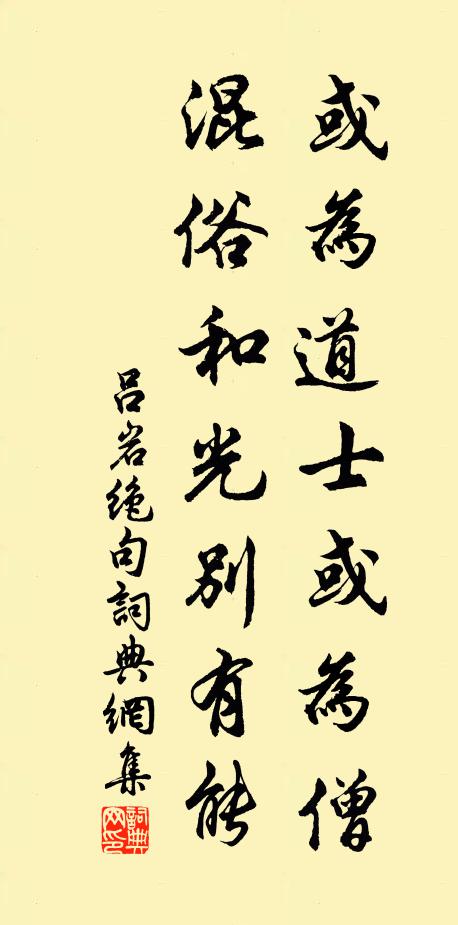 或為道士或為僧
混俗和光別有能
吕岩绝句詞典網集
詞典
网印